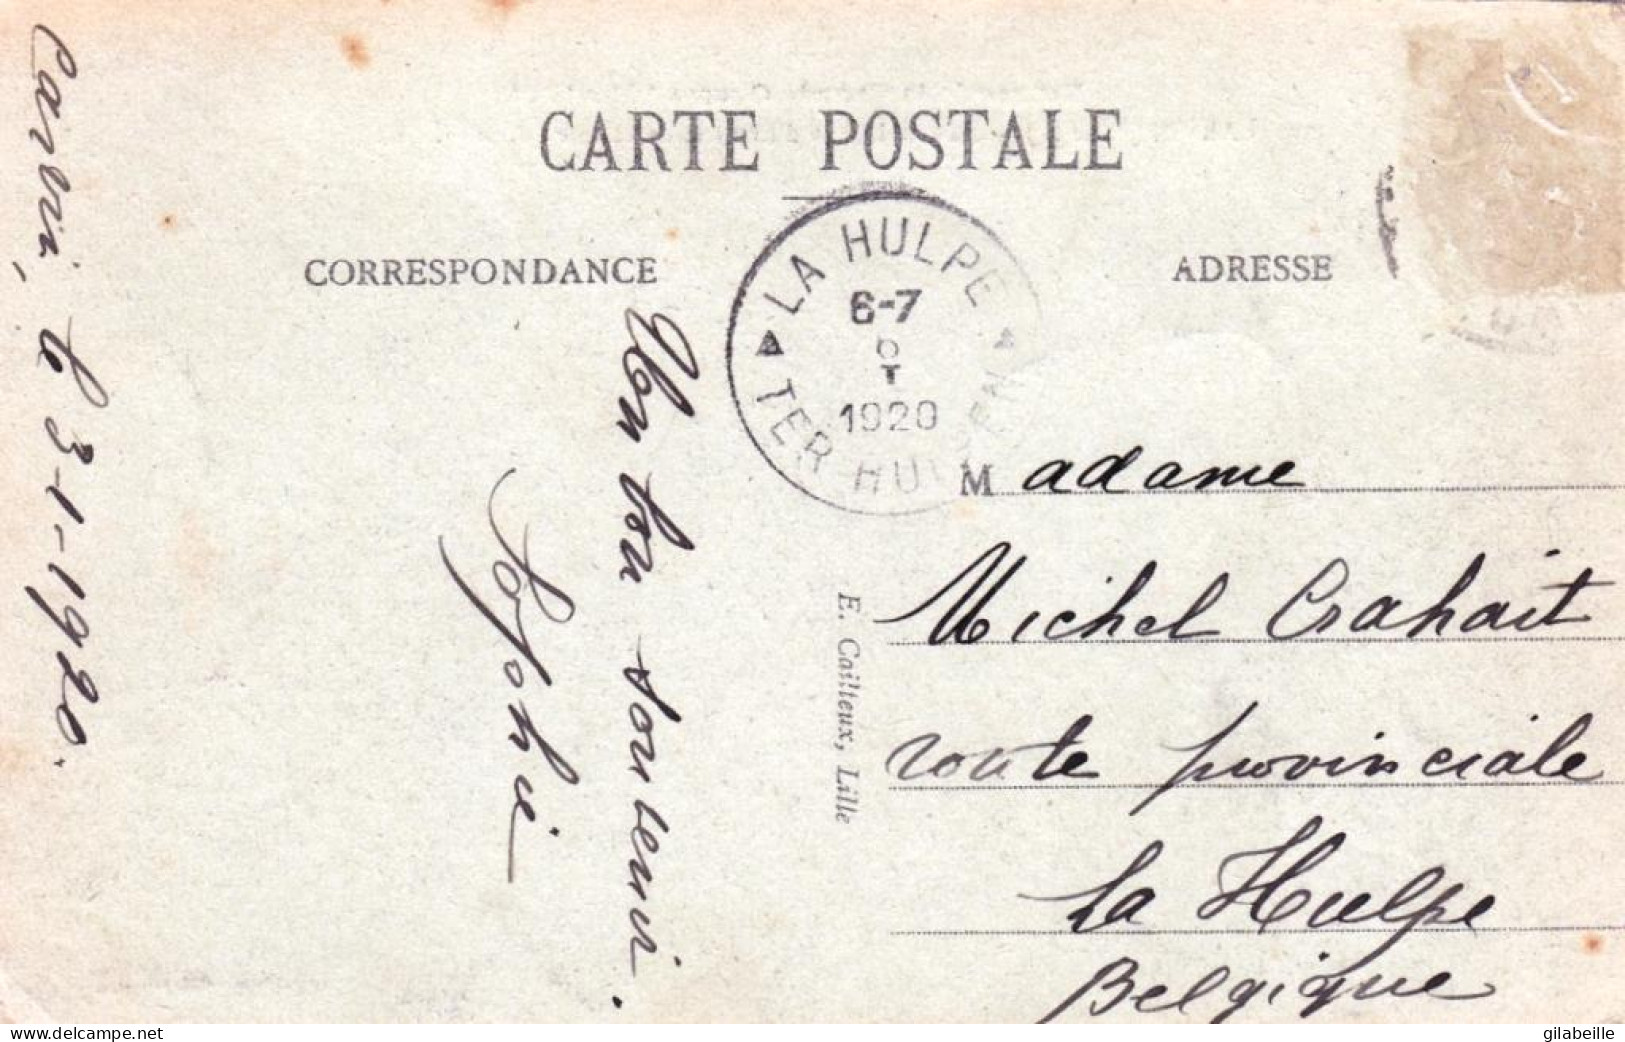 CARTE POSTALE
CORRESPONDANCE
ADRESSE
LA HULPE
6-7
1920
TER HULPEN
Carvin, le 3-1-1920.
Un bon souvenir.
Sophie
E. Cailteux, Lille
Madame
Michel Crahait
route provinciale
La Hulpe
Belgique
www.delcampe.net
gilabeille